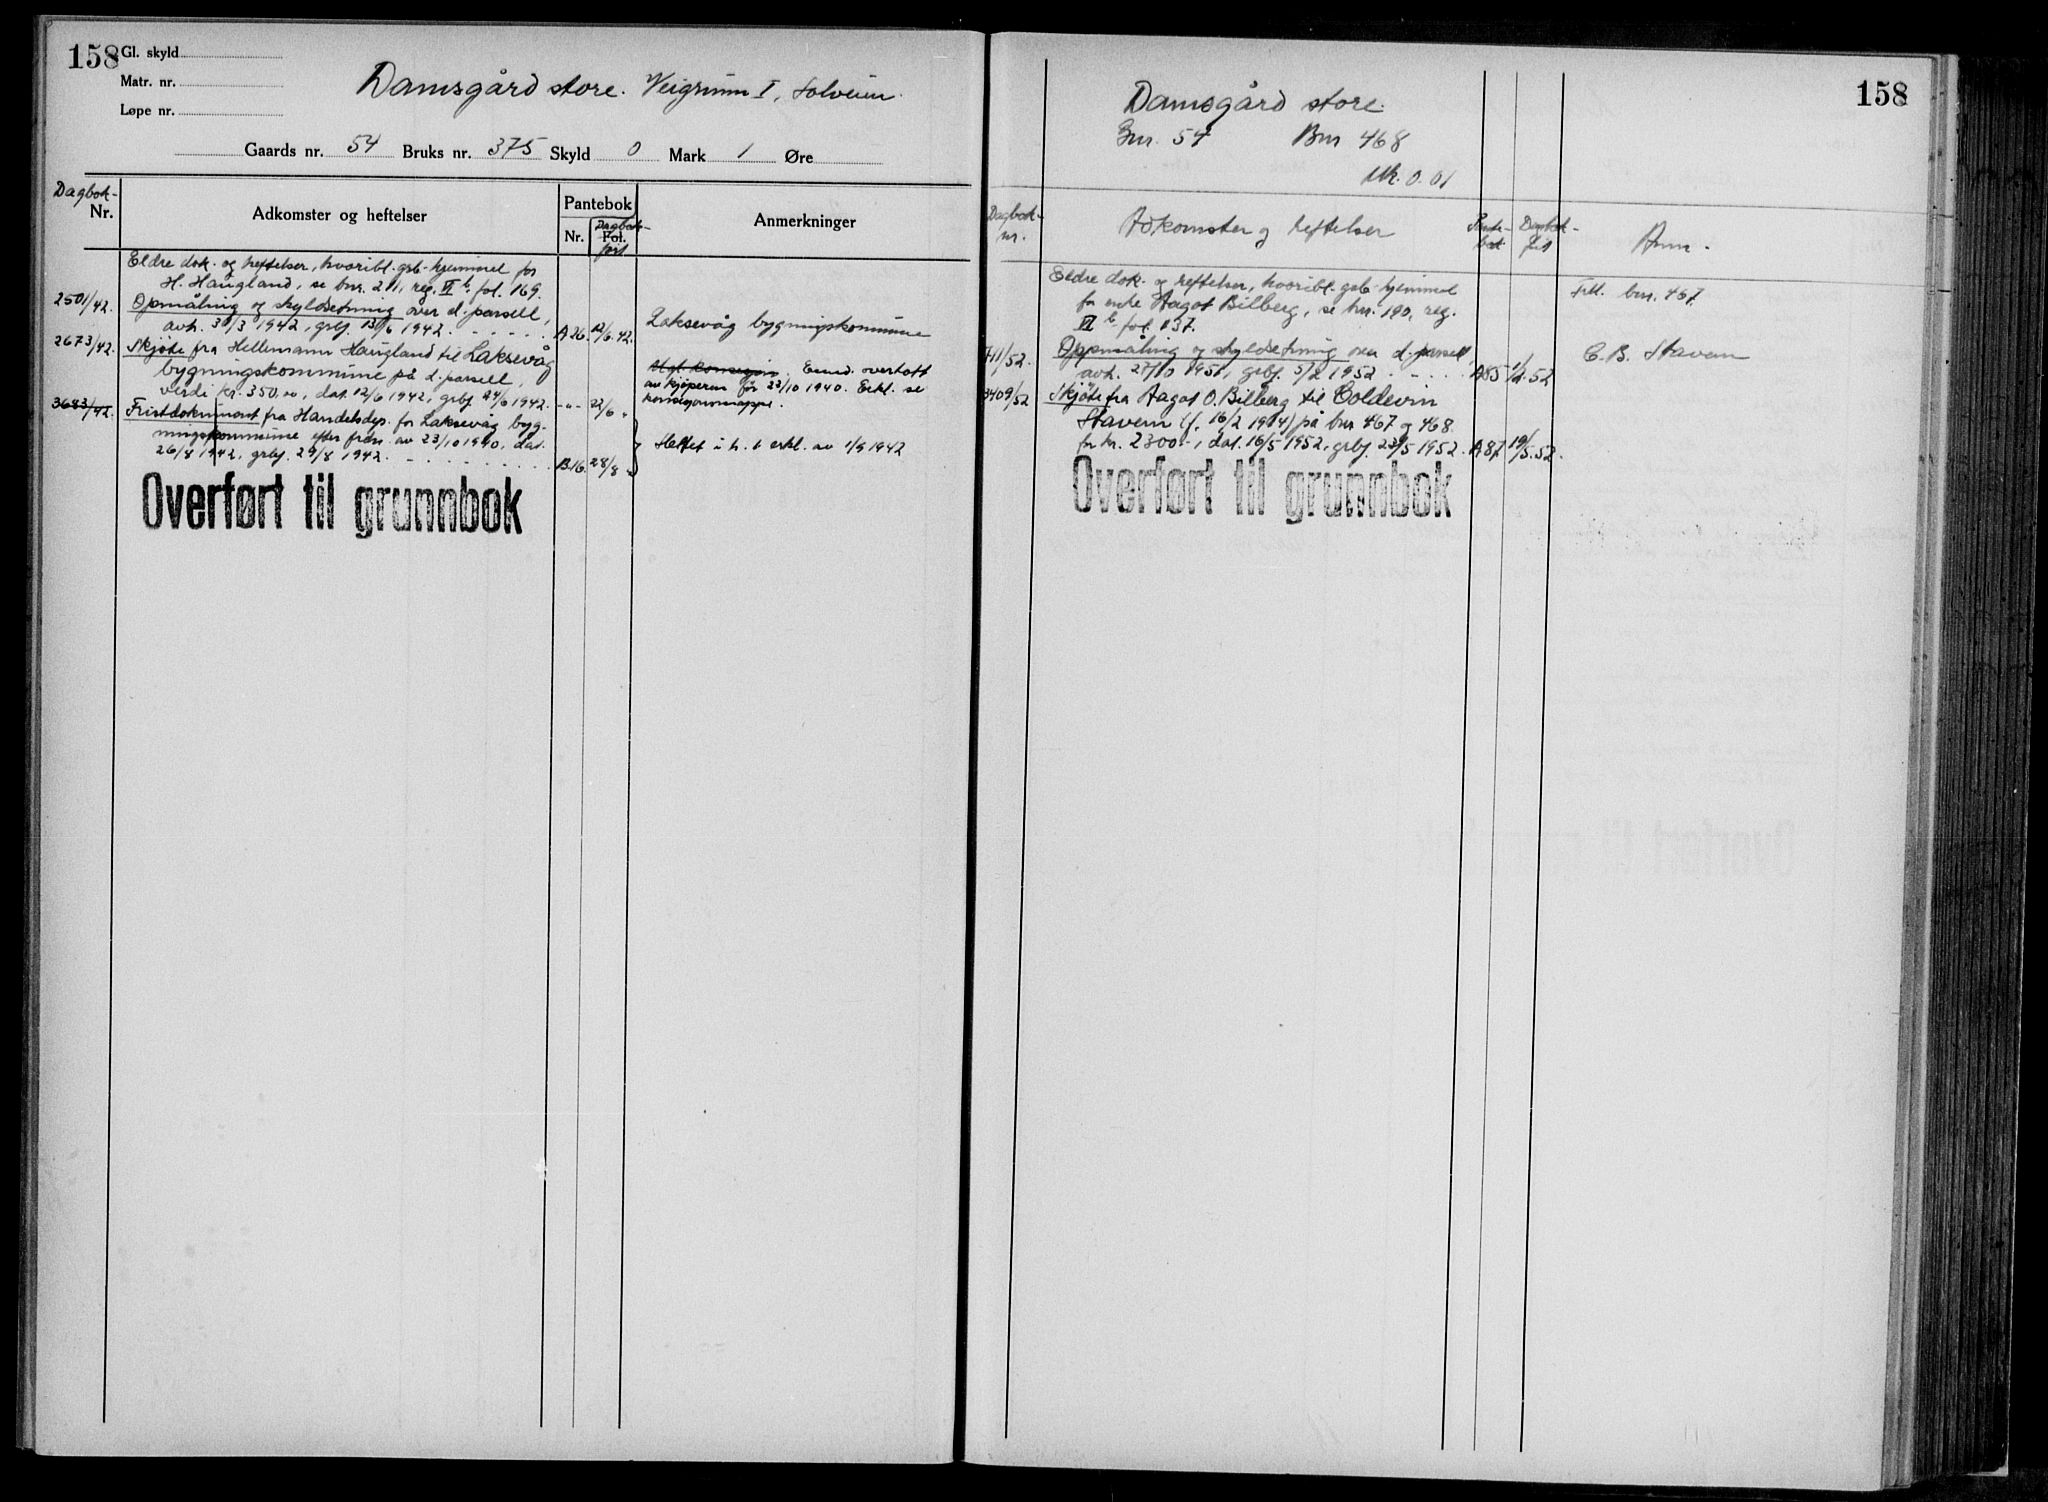 158
Gl. skyld
Matr. nr.
Løpe nr.
Damsgård store. Veigrunn I, Solveien.
Gaards nr. 54 Bruks nr. 375 Skyld 0 Mark 1 Øre
Dagbok-
Nr.
Adkomster og heftelser
Pantebok
Nr.
Fol.
Dagbok-
ført
Anmerkninger
Eldre dok. og heftelser, hvoribl. grb-hjemmel for
H. Haugland, se bnr. 211, reg. II b. fol. 169.
2501/42. Opmåling og skyldsetning over d. parsell,
avh. 31/3 1942, grbf. 13/6 1942. A26. 12/6.42. Laksevåg bygningskommune
2673/42. Skjøte fra Hellemann Haugland til Laksevåg
bygningskommune på d. parsell,
verdi kr. 350,00, dat. 12/6 1942, grbf. 24/6 1942. -"- 22/6 "
Eiend. overtatt
av kjøperen før 23/10 1940. Erkl. se
konsesjonsmappe.
3683/42. Fristdokument fra Handelsdep. for Laksevåg byg-
ningskommune efter frdn. av 23/10 1940, dat.
26/8 1942, grbf. 29/8 1942. B.16. 28/8 "
Heftet i h. t. erkl. av 1/9 1942
Overført til grunnbok
158
Damsgård store.
Gnr. 54 Bnr 468
Mk. 0.01
Dagbok-
nr.
Adkomster og heftelser
Pante-
bok
Dagbok-
ført
Anm.
Eldre dok. og heftelser, hvoribl. grb-hjemmel
for enke Aagot Bilberg, se bnr. 190, reg.
VI b. fol. 137.
Fell. bnr. 467.
711/52. Oppmåling og skyldsetning over d. parsell,
avh. 27/10 1951, grbf. 5/2 1952. A85 1/2.52
C. B. Stavem
3409/52 Skjøte fra Aagot O. Bilberg til Coldevin
Stavem (f. 16/2 1914) på bnr 467 og 468
for kr. 2300.-, dat. 16/5 1952, grbf. 23/5 1952. A87 19/5.52.
Overført til grunnbok